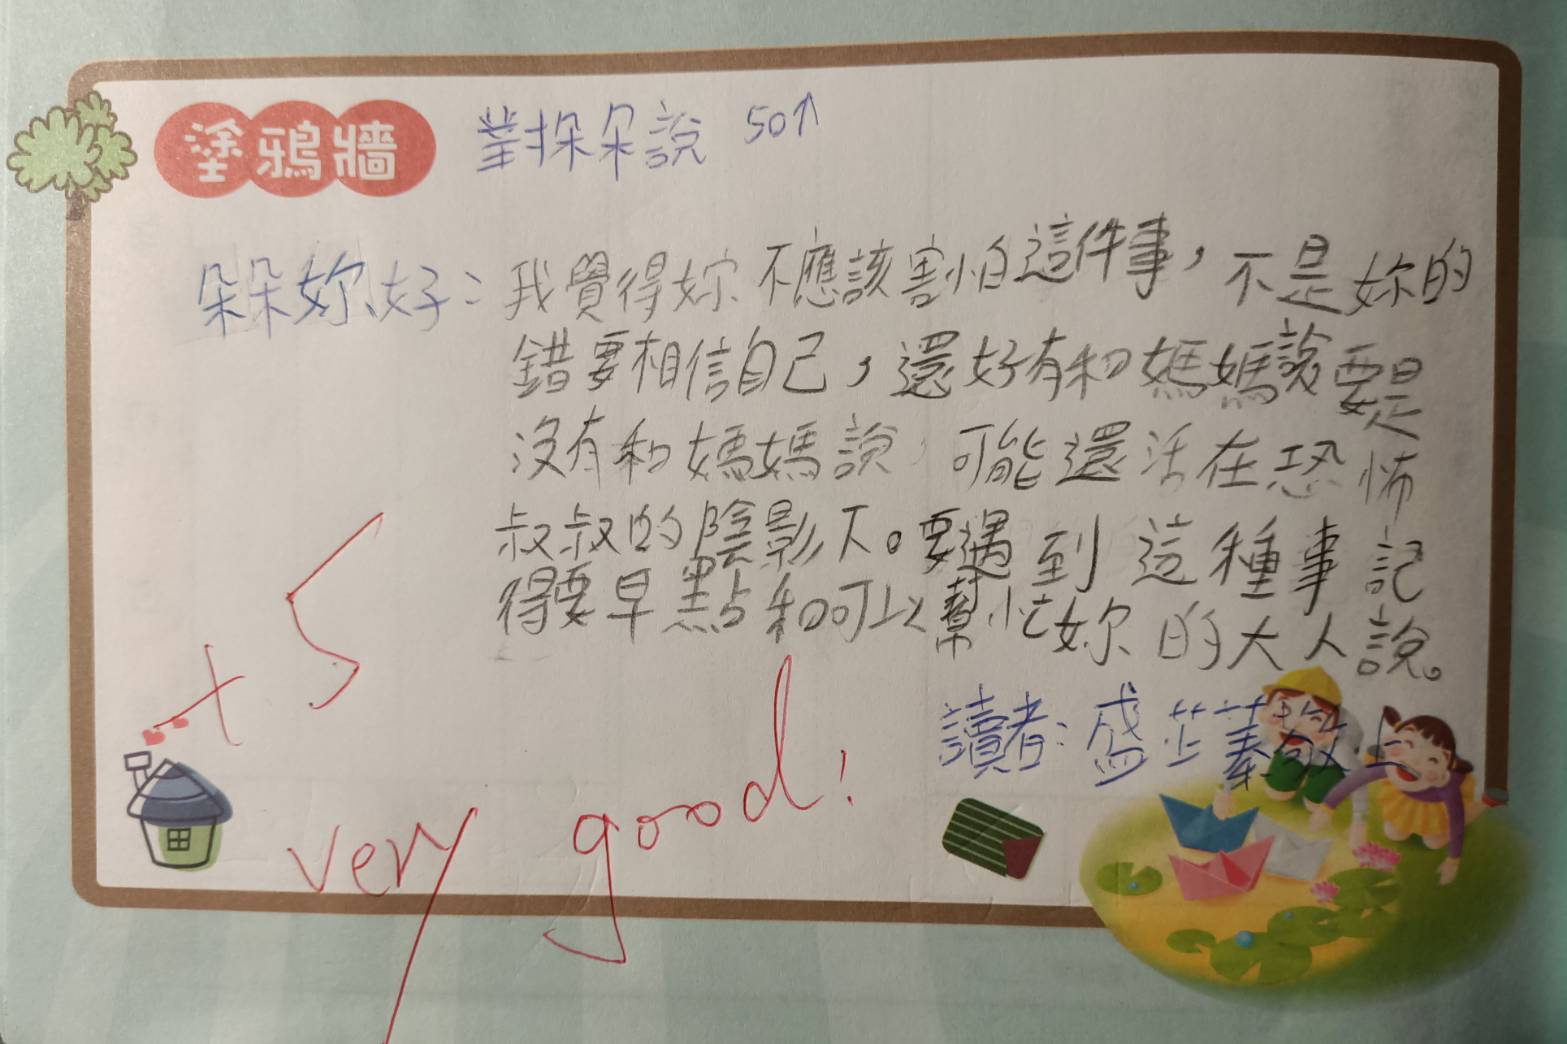 塗鴉牆 對朵朵說 50↑
朵朵妳好：我覺得妳不應該害怕這件事，不是妳的
錯要相信自己，還好有和媽媽說要是
沒有和媽媽說，可能還活在恐怖
叔叔的陰影下。要遇到這種事記
得要早點和可以幫忙妳的大人說。
讀者：盛芷蓁敬上
+5
very good!